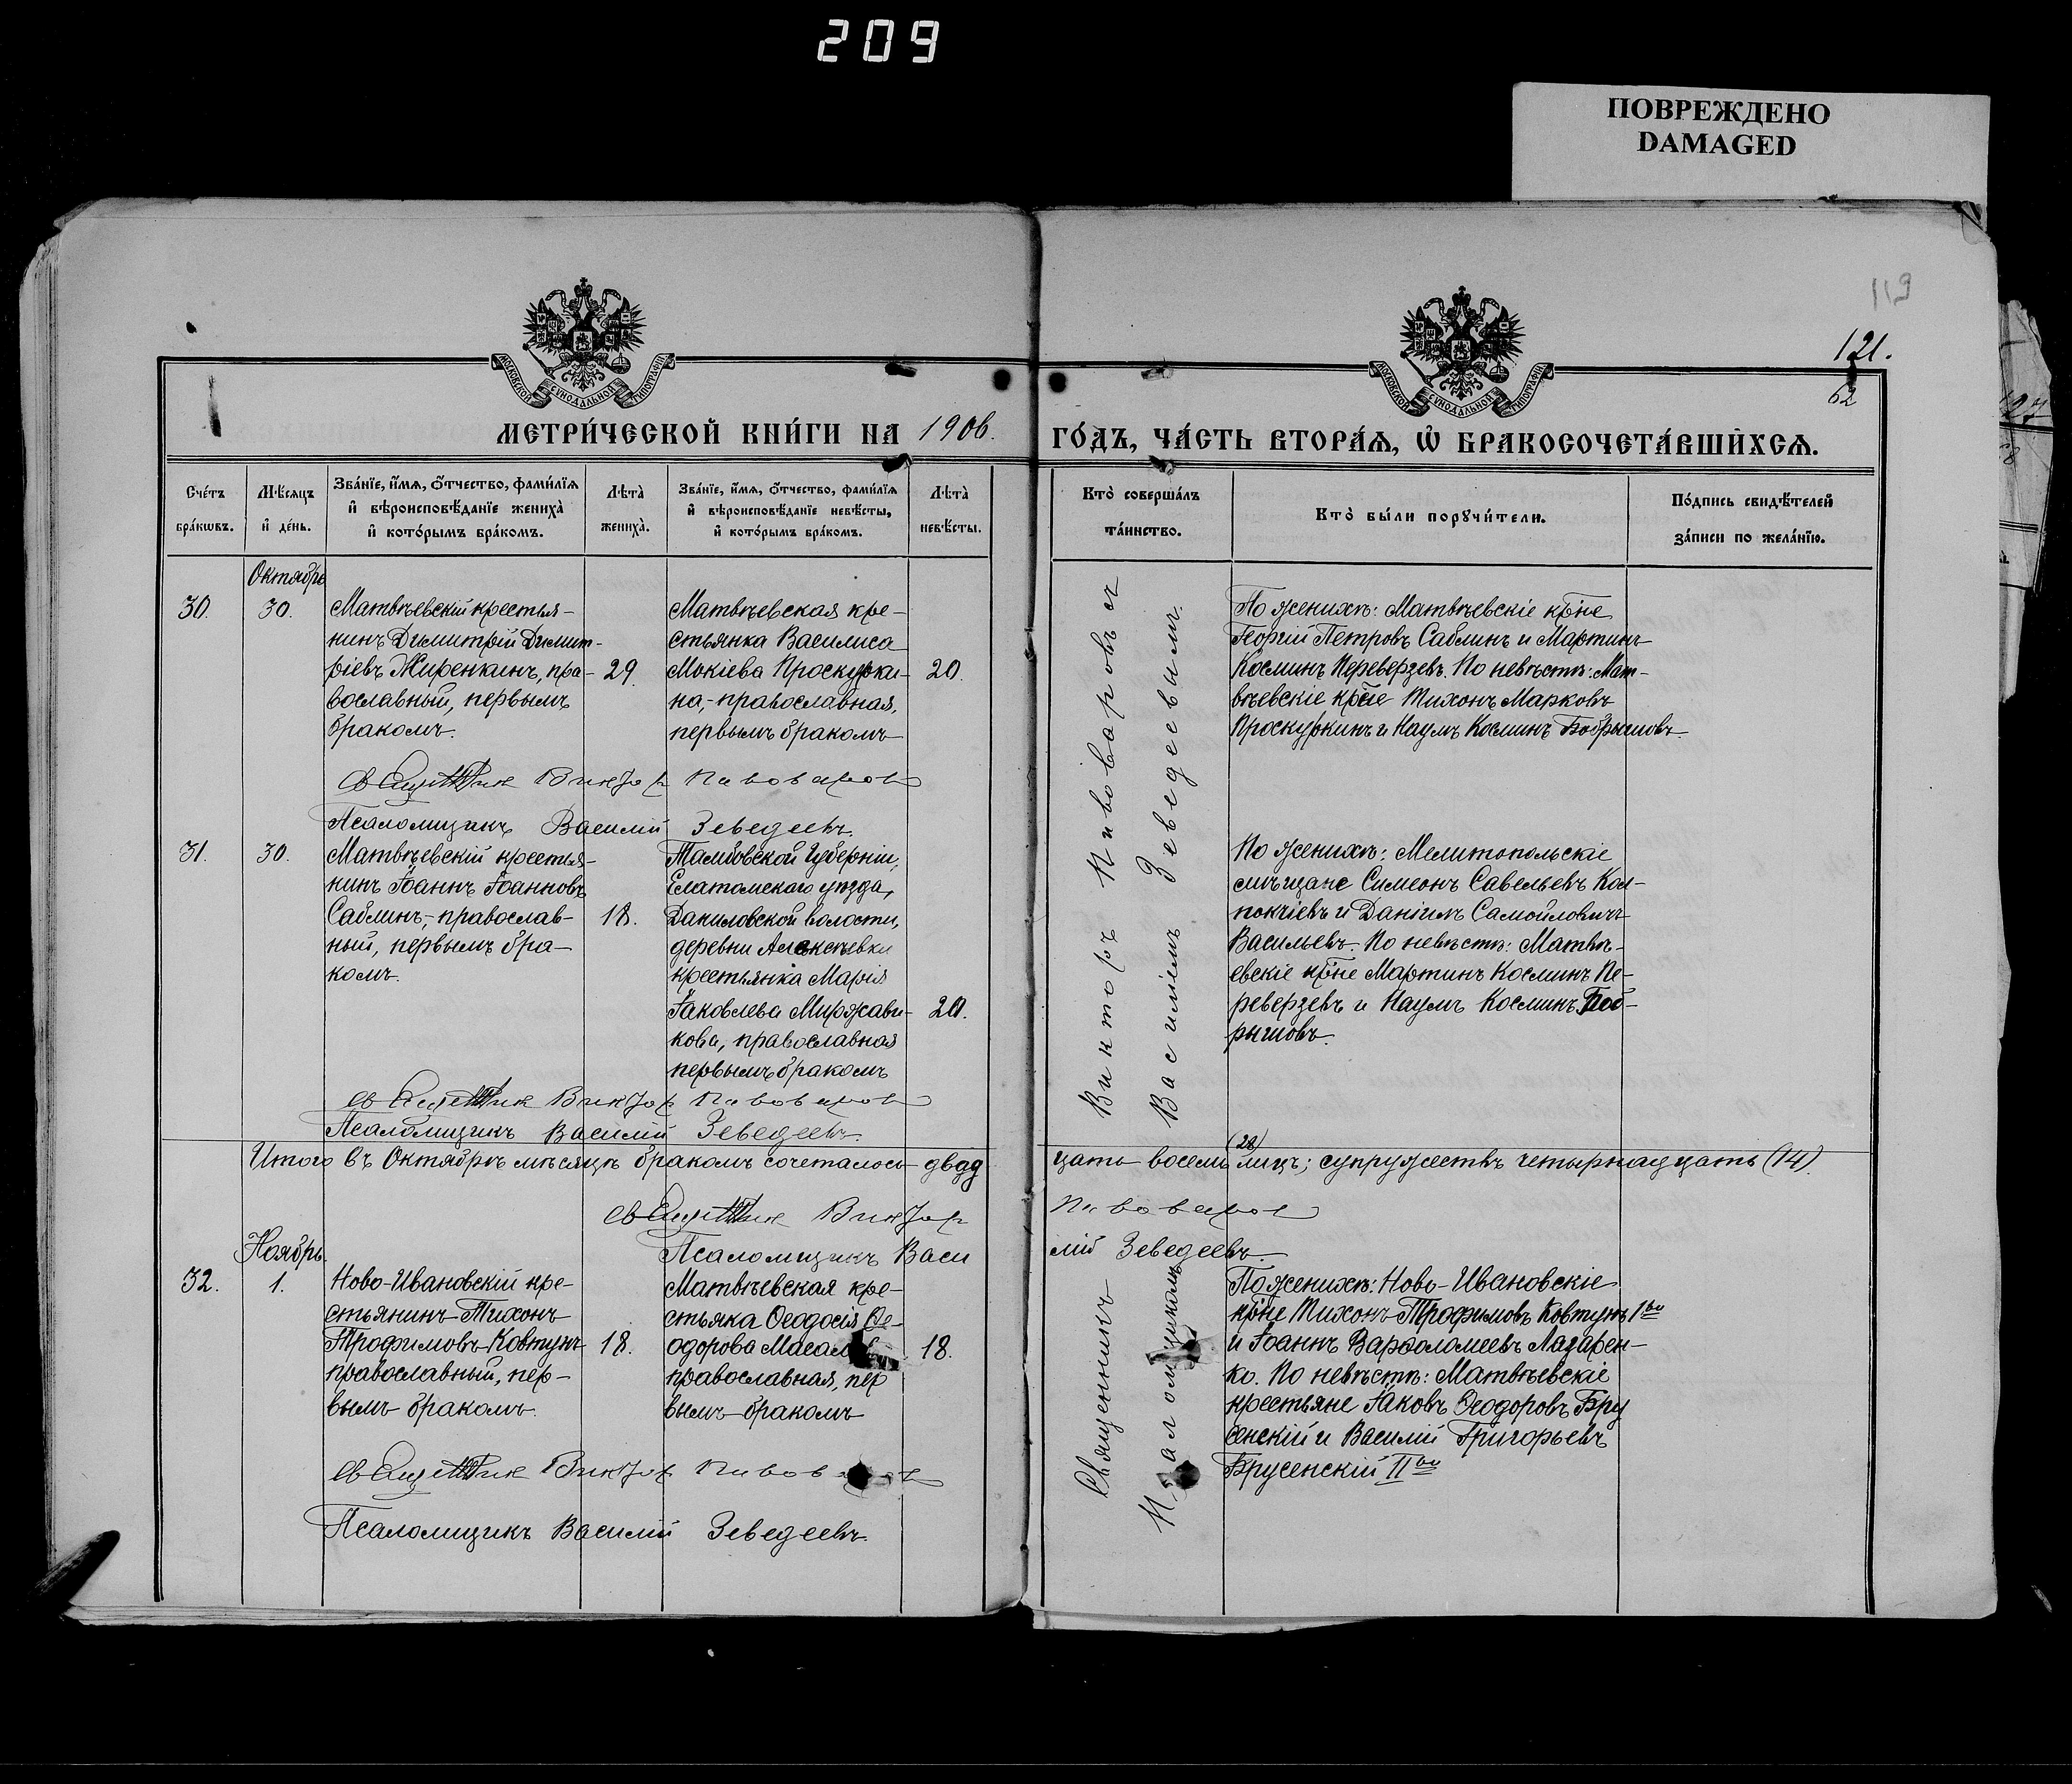 209
ПОВРЕЖДЕНО
DAMAGED
119
121.
62
МОСКОВСКОЙ СѴНОДАЛЬНОЙ ТИПОГРАФІИ
МОСКОВСКОЙ СѴНОДАЛЬНОЙ ТИПОГРАФІИ
МЕТРИ́ЧЕСКОЙ КНИ́ГИ НА 1906.
ГО́ДЪ, ЧА́СТЬ ВТОРА́Ѧ, Ѡ҆ БРАКОСОЧЕТА́ВШИХСѦ.
Сче́тъ
бра́кѡвъ.
Мѣ́сѧцъ
и҆ де́нь.
Зва́нїе, и҆́мѧ, ѻ҆́тчество, фами́лїѧ
и҆ вѣроисповѣ́данїе жениха̀
и҆ кото́рымъ бра́комъ.
Лѣта̀
жениха̀.
Зва́нїе, и҆́мѧ, ѻ҆́тчество, фами́лїѧ
и҆ вѣроисповѣ́данїе невѣ́сты,
и҆ кото́рымъ бра́комъ.
Лѣта̀
невѣ́сты.
Кто̀ соверша́лъ
та́инство.
Кто̀ бы́ли порꙋчи́тели.
По́дпись свидѣ́телей
за́писи по жела́нїю.
Октябрь
30.
30.
Матвѣевскій крестья-
нинъ Димитрій Димит-
ріевъ Жиренкинъ, пра-
вославный, первымъ
бракомъ.
29.
Матвѣевская кре-
стьянка Василиса
Мокіева Проскурки-
на,-православная,
первымъ бракомъ
20.
По женихѣ: Матвѣевскіе кр̃не
Георгій Петровъ Саблинъ и Мартинъ
Косминъ Переверзевъ. По невѣстѣ: Мат-
вѣевскіе кр̃не Тихонъ Марковъ
Проскуркинъ и Наумъ Косминъ Бобрышовъ
Священникъ Викторъ Пивоваровъ
Псаломщикъ Василій Зеведеевъ.
31.
30.
Матвѣевскій крестья-
нинъ Іоаннъ Іоанновъ
Саблинъ,-православ-
ный, первымъ бра-
комъ.
18.
Тамбовской Губерніи,
Елатомскаго уѣзда,
Даниловской волости,
деревни Алексѣевки
крестьянка Марія
Іаковлева Миржави-
кова, православная
первымъ бракомъ
20.
По женихѣ: Мелитопольскіе
мѣщане Симеонъ Савельевъ Кол-
покчіевъ и Даніилъ Самойловичъ
Васильевъ. По невѣстѣ: Матвѣ-
евскіе кр̃не Мартинъ Косминъ Пе-
реверзевъ и Наумъ Косминъ Боб-
рышовъ.
Священникъ Викторъ Пивоваровъ
Псаломщикъ Василій Зеведеевъ.
Итого въ Октябрѣ мѣсяцѣ бракомъ сочеталось двад
цать восемь (28) лицъ; супружествъ четырнадцать (14).
Священникъ Викторъ
Пивоваровъ
Псаломщикъ Васи
лій Зеведеевъ.
Ноябрь.
32.
1.
Ново-Ивановскій кре-
стьянинъ Тихонъ
Трофимовъ Ковтунъ
православный, пер-
вымъ бракомъ.
18.
Матвѣевская кре-
стьяка Ѳеодосія Ѳе-
одорова
православная, пер
вымъ бракомъ
18.
По женихѣ: Ново-Ивановскіе
кр̃не Тихонъ Трофимовъ Ковтунъ 1ый
и Іоаннъ Варѳоломеевъ Лазарен-
ко. По невѣстѣ: Матвѣевскіе
крестьяне Іаковъ Ѳеодоровъ Бру
сенскій и Василій Григорьевъ
Брусенскій IIой
Священникъ Викторъ Пивоваровъ
Псаломщикъ Василій Зеведеевъ.
Священникъ Викторъ Пивоваровъ съ
Псаломщикомъ Василіемъ Зеведеевымъ.